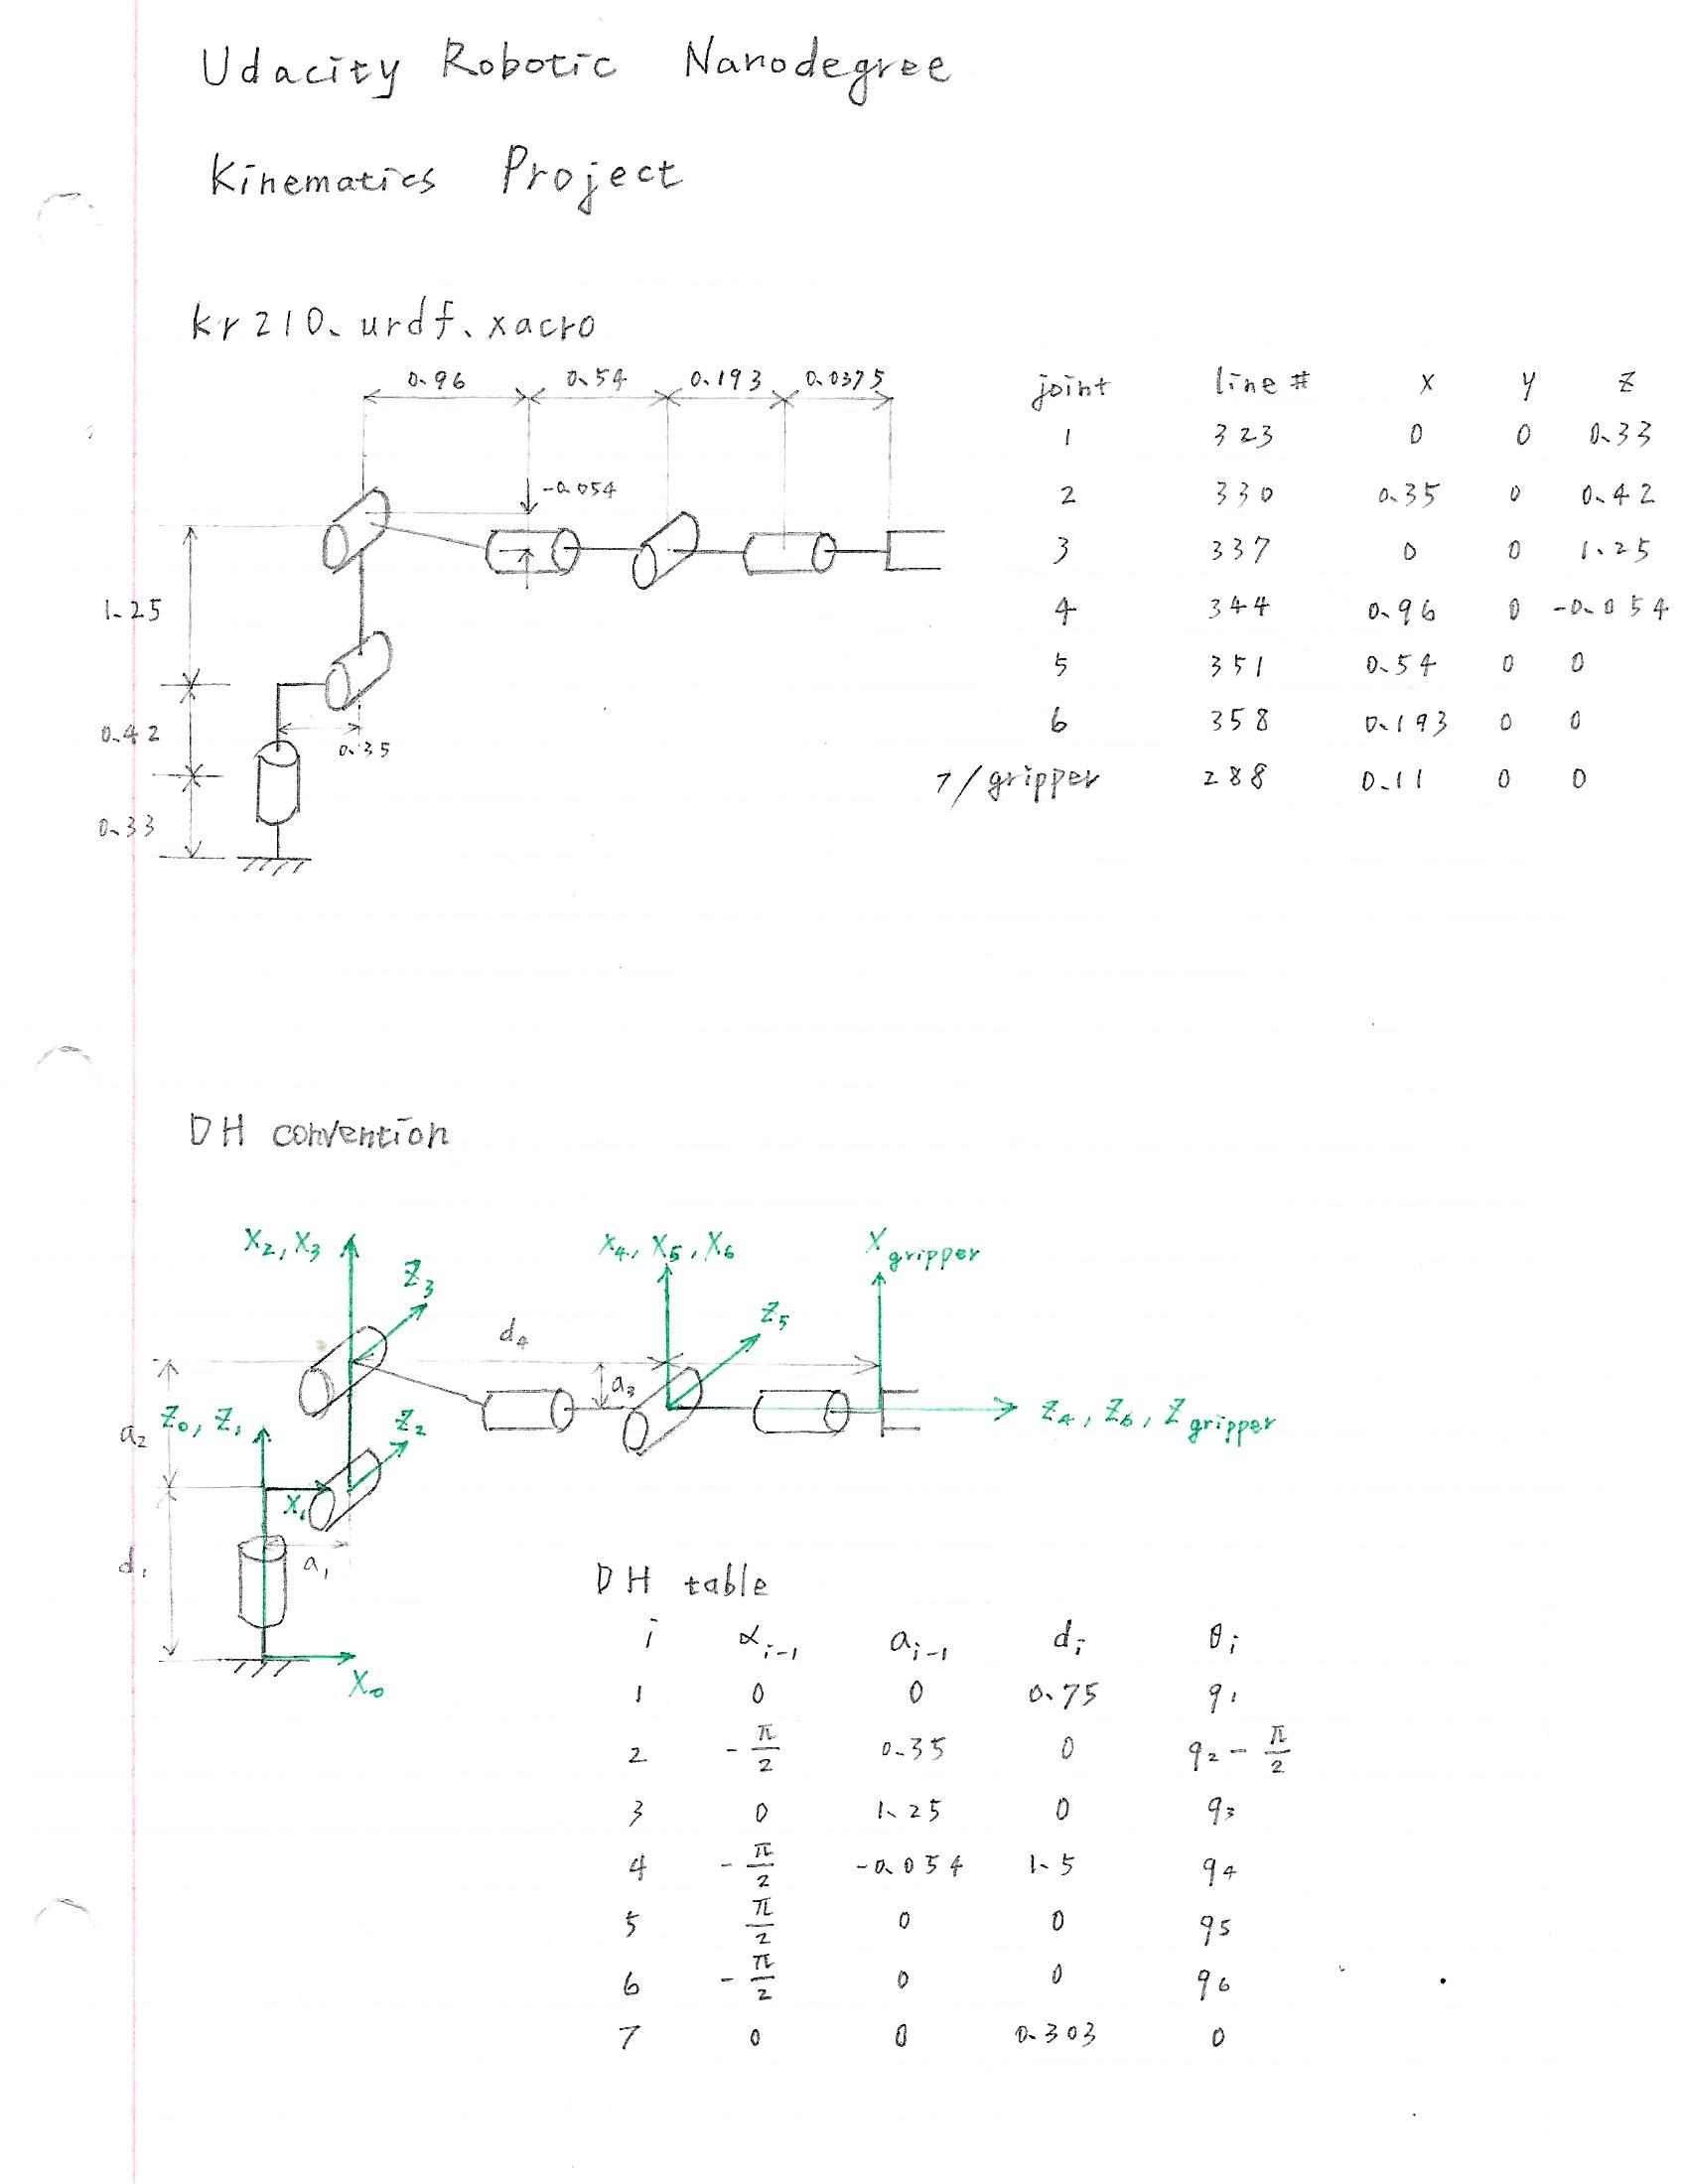 Udacity Robotic Nanodegree
Kinematics Project
kr210.urdf.xacro
0.96 0.54 0.193 0.0375
-0.054
1.25
0.42
0.35
0.33
joint line # x y z
1 323 0 0 0.33
2 330 0.35 0 0.42
3 337 0 0 1.25
4 344 0.96 0 -0.054
5 351 0.54 0 0
6 358 0.193 0 0
7/gripper 288 0.11 0 0
DH convention
X2, X3
Z3
X4, X5, X6
X gripper
Z5
d4
a3
a2
Z0, Z1
Z2
Z4, Z6, Z gripper
X1
d1
a1
X0
DH table
i αi-1 ai-1 di θi
1 0 0 0.75 q1
2 -π/2 0.35 0 q2 - π/2
3 0 1.25 0 q3
4 -π/2 -0.054 1.5 q4
5 π/2 0 0 q5
6 -π/2 0 0 q6
7 0 0 0.303 0